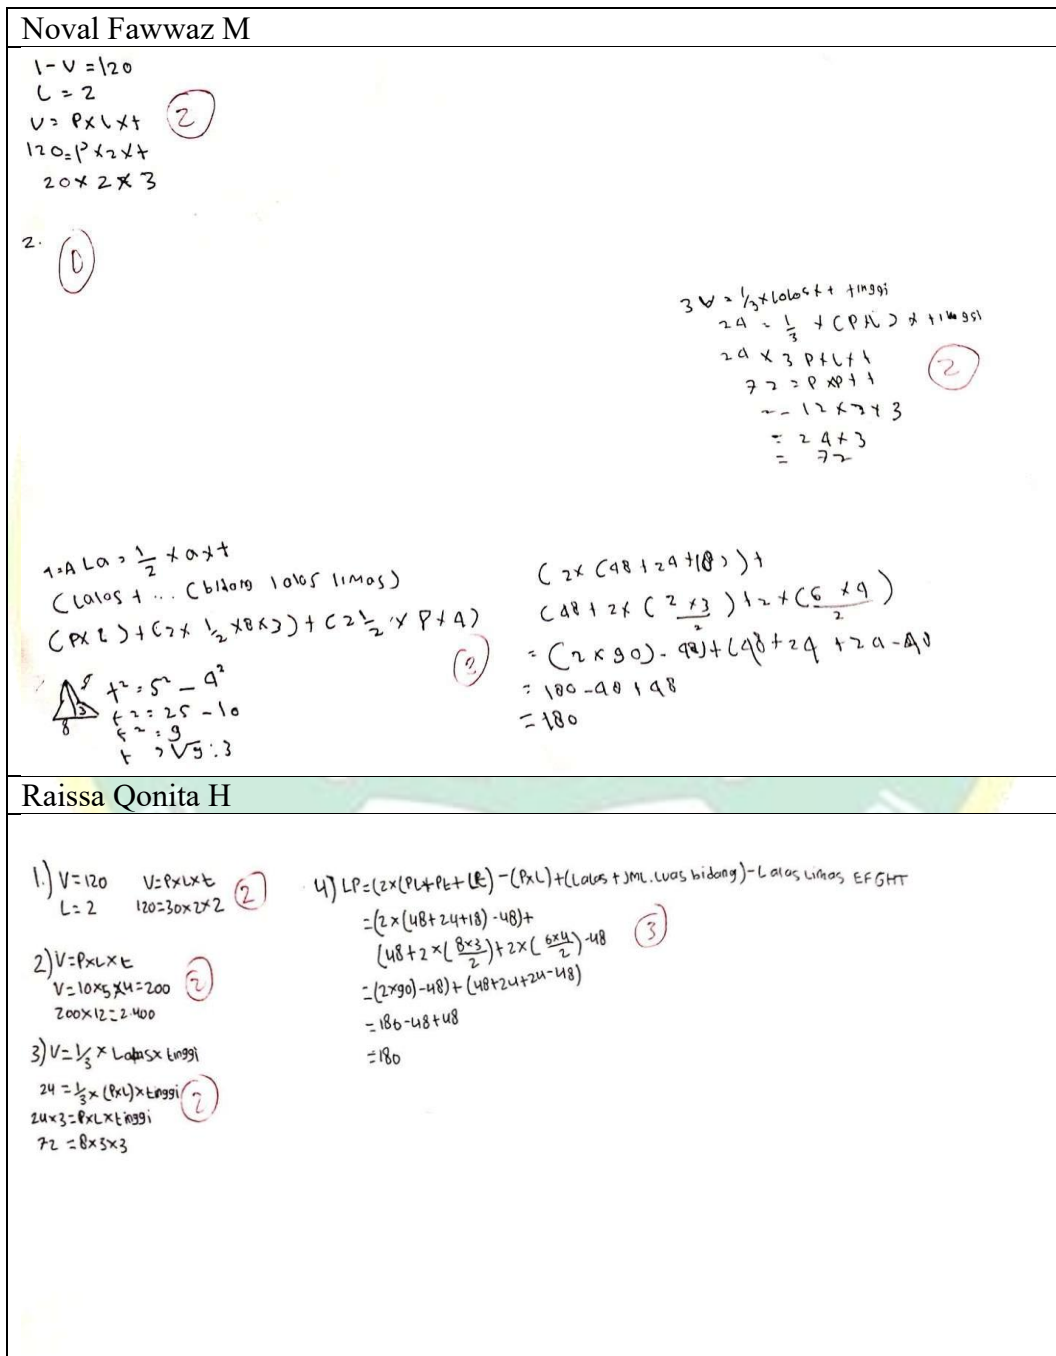 Noval Fawwaz M
1 - V = 120
L = 2
V = P x L x t
2
120 = P x 2 x t
20 x 2 x 3
2.
0
3 V = 1/3 x Lalas x t tinggi
24 = 1/3 x (P x L) x tinggi
24 x 3 P x L x t
2
= 24 x 3
= 72
La = 1/2 x a x t
(Lalas + ... (bidang lalas limas)
(P x L) + (2 x 1/2 x 8 x 3) + (2 1/2 x P x 4)
3
5
3
8
t² = 5² - 4²
t² = 25 - 16
t² = 9
t = √9 : 3
(2 x (48 + 24 + 18)) +
(48 + 2 x (2 x 3 / 2) + 2 x (6 x 4 / 2)
= (2 x 90) - 48) + (48 + 24 + 24 - 48
= 180 - 48 + 48
= 180
Raissa Qonita H
1.) V = 120 V = P x L x t
L = 2 120 = 30 x 2 x 2
2
2) V = P x L x t
V = 10 x 5 x 4 = 200
200 x 12 = 2.400
2
3) V = 1/3 x Lalas x tinggi
24 = 1/3 x (P x L) x tinggi
24 x 3 = P x L x tinggi
72 = 8 x 3 x 3
2
4) LP = (2 x (PL + Pt + Lt) - (P x L) + (Lalas + JML. Luas bidang) - Lalas Limas EFGHT
= (2 x (48 + 24 + 18) - 48) +
(48 + 2 x (8 x 3 / 2) + 2 x (6 x 4 / 2) - 48
3
= (2 x 90) - 48) + (48 + 24 + 24 - 48)
= 180 - 48 + 48
= 180